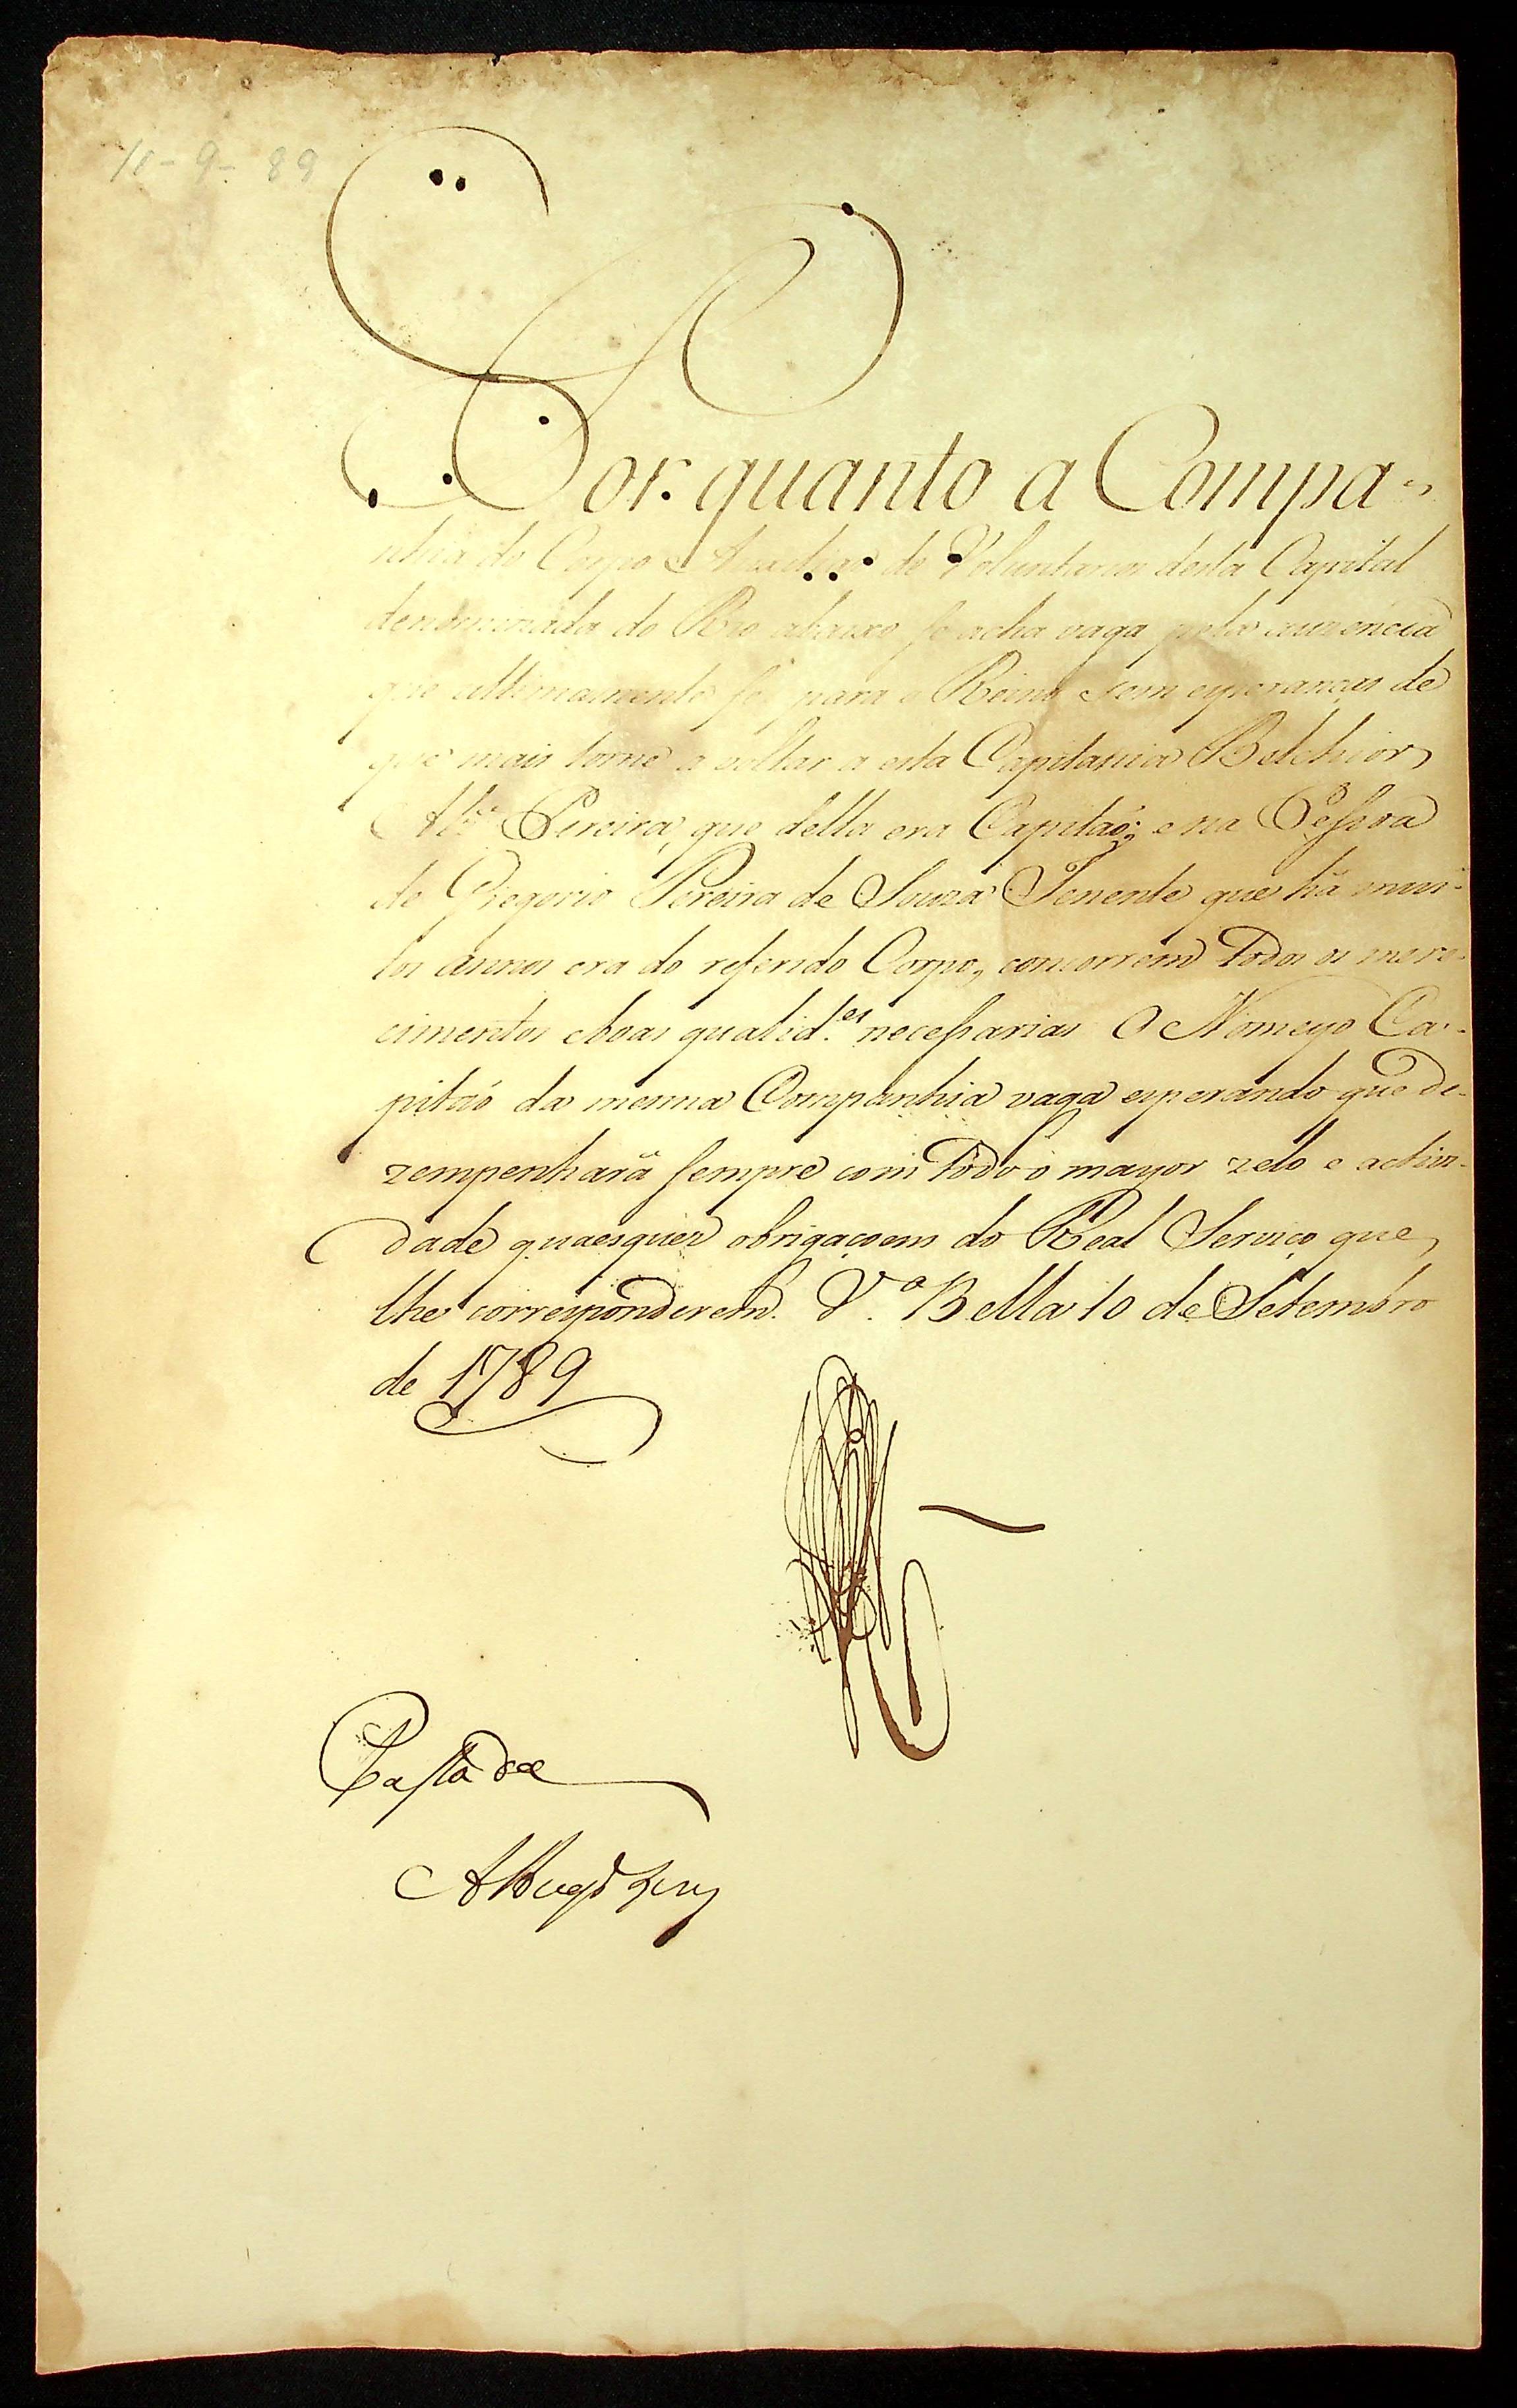 10-9-89
Por quanto a Compa-
nhia do Corpo Auxiliar de Voluntarios desta Capital
denominada do Rio abaixo se acha vaga pela auzencia
que ultimamente fes para o Reino sem esperanças de
que mais torne a voltar a esta Capitania Belchior
Alz Pereira, que della era Capitaó; e na Pessoa
de Gregorio Pereira de Souza Tenente que há mui-
tos annos era do referido Corpo, concorrem todos os mere-
cimentos e boas qualid.es necessarias O Nomeyo Ca-
pitaó da mesma Companhia vaga esperando que de-
zempenhará sempre com todo o mayor zelo e activi-
dade quaesquer obrigaçoens do Real Serviço que
lhe corresponderem. V.a Bella 10 de Setembro
de 1789